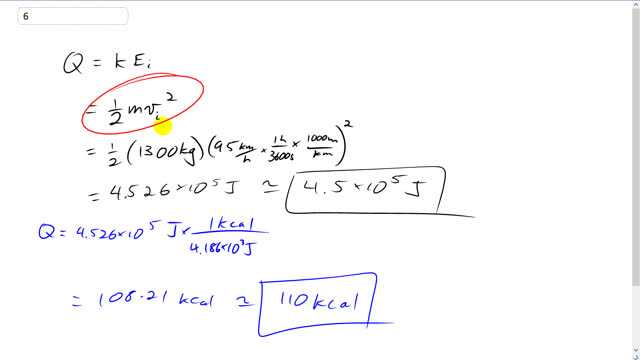 6
Q = k E i
= 1/2 m v i ²
= 1/2 (1300 kg) (95 km/h × 1h/3600s × 1000m/km)²
= 4.526 × 10⁵ J ≃ 4.5 × 10⁵ J
Q = 4.526 × 10⁵ J × 1 kcal / 4.186 × 10³ J
= 108.21 kcal ≃ 110 kcal